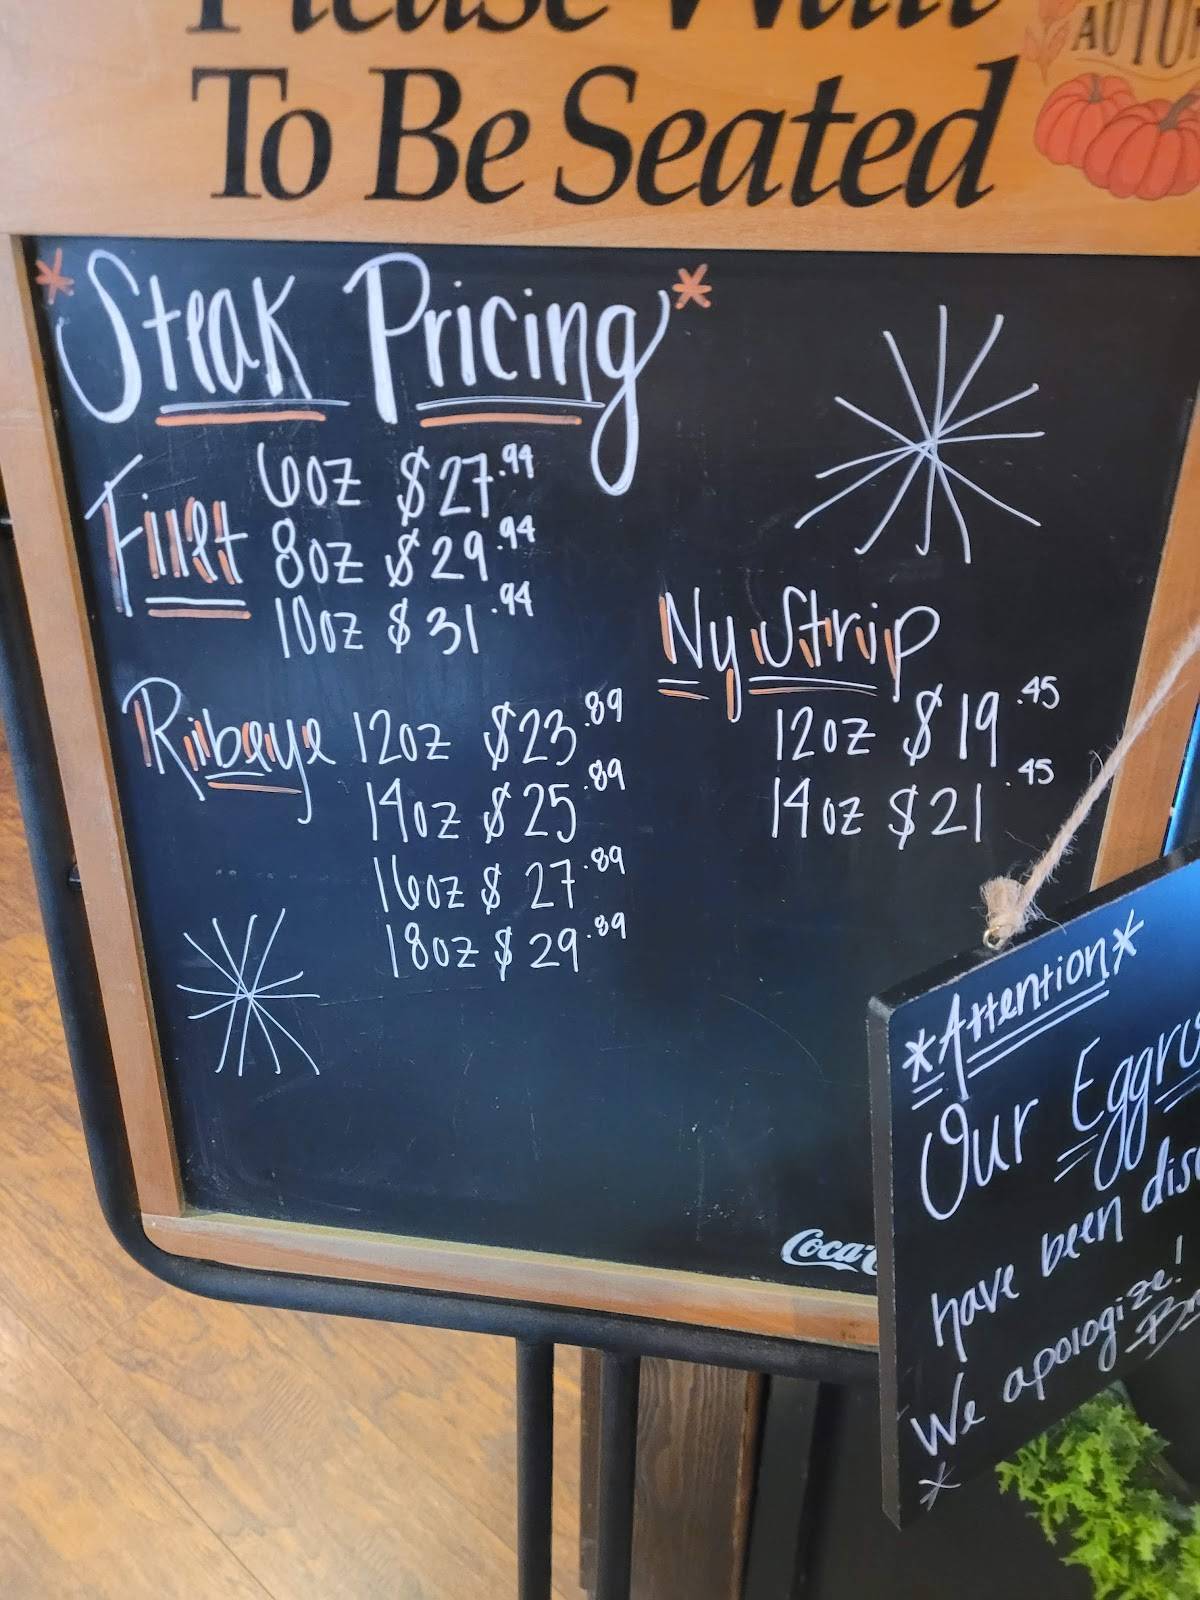 Please Wait
To Be Seated
*Steak Pricing*
Filet 6oz $27.94
8oz $29.94
10oz $31.94
Ribeye 12oz $23.89
14oz $25.89
16oz $27.89
18oz $29.89
Ny Strip
12oz $19.45
14oz $21.45
*Attention*
Our
have been
We apologize!
*